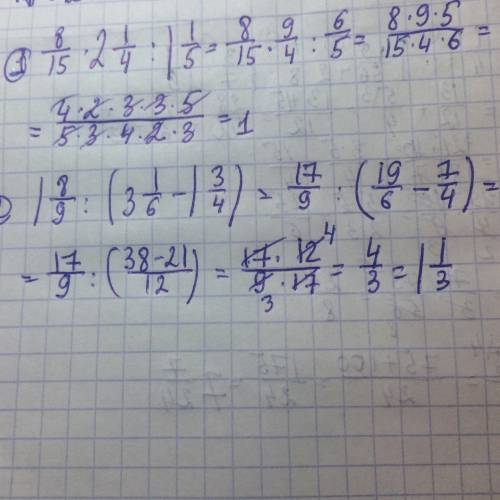 1) 8/15 · 2 1/4 : 1 1/5 = 8/15 · 9/4 : 6/5 = 8·9·5/15·4·6 =
= 4·2·3·3·5/5·3·4·2·3 = 1
1 8/9 : (3 1/6 - 1 3/4) = 17/9 : (19/6 - 7/4) =
= 17/9 : (38-21/12) = 17·12 4/9 3·17 = 4/3 = 1 1/3